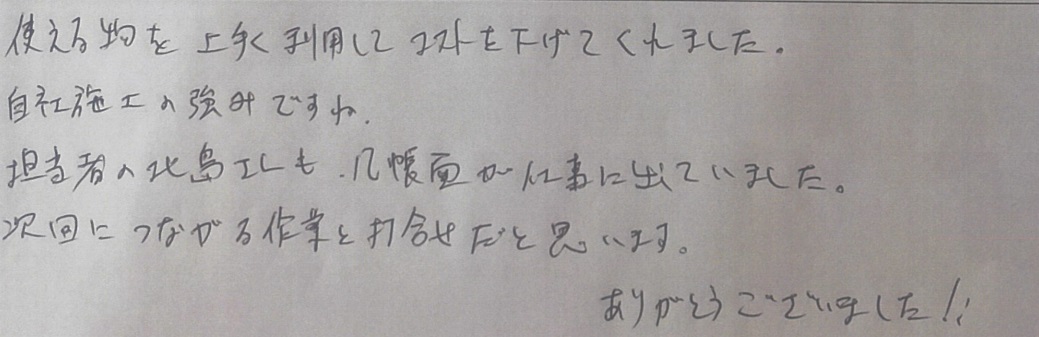 使える物を上手く利用してコストを下げてくれました。
自社施工の強みですね.
担当者の北島さんも.几帳面が仕事に出ていました。
次回につながる作業と打合せだと思います。
ありがとうございました!!